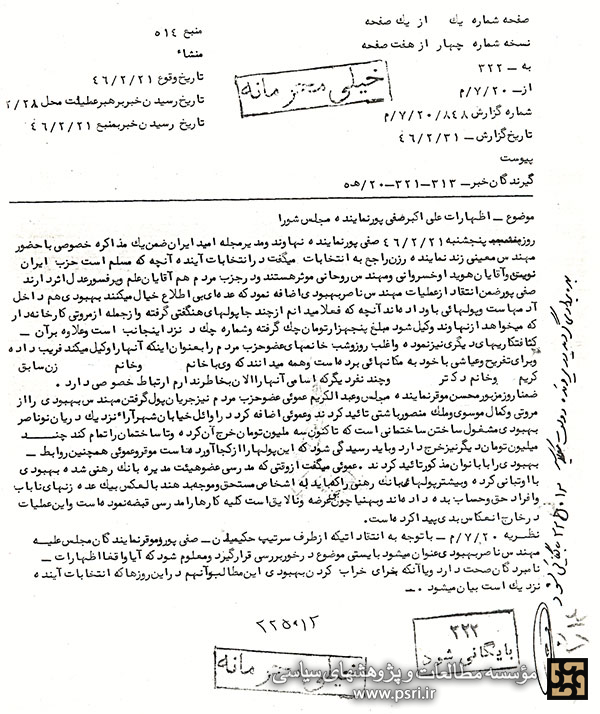 صفحه شماره یك از یك صفحه
نسخه شماره چهار از هفت صفحه
به ــ ۳۲۲
از ــ ۷/۲۰/م
شماره گزارش ۷/۲۰/۸۴۸/م
تاریخ گزارش ــ ۴۶/۲/۳۱
پیوست
گیرندگان خبر ــ ۳۱۳ ــ ۳۲۱ ــ ۲۰/ه‍ ۵
منبع ۵۱۴
منشاء
تاریخ وقوع ۴۶/۲/۲۱
تاریخ رسیدن خبر برهبر عملیات محل ۲/۲۸
تاریخ رسیدن خبر بمنبع ۴۶/۲/۲۱
خیلی محرمانه
موضوع ــ اظهارات علی اکبر صفی پور نماینده مجلس شورا
روز پنجشنبه ۴۶/۲/۲۱ صفی پور نماینده نهاوند و مدیر مجله امید ایران ضمن یك مذاکره خصوصی با حضور
مهندس معینی زند نماینده رزن راجع به انتخابات میگفت در انتخابات آینده آنچه که مسلم است حزب ایران
نوین و آقایان هویدا و خسروانی و مهندس روحانی موثر هستند و در حزب مردم هم آقایان علم و پرفسور عدل اثر دارند
صفی پور ضمن انتقاد از عملیات مهندس ناصر بهبودی اضافه نمود که عده‌ای بی اطلاع خیال میکنند بهبودی هم داخل
آدمهاست و پولهائی باو داده‌اند آنچه که فعلا میدانم از چند جا پولهای هنگفتی گرفته و از جمله از مروتی کارخانه‌دار
که میخواهد از نهاوند وکیل شود مبلغ پنجهزار تومان چك گرفته و شماره چك در نزد اینجانب است وعلاوه برآن ــ
کثافتکاریهای دیگری نیز نموده و اغلب روز و شب خانمهای عضو حزب مردم را بعنوان اینکه آنها را وکیل میکند فریب داده
و برای تفریح و عیاشی با خود به مکانهائی برده است و همه میدانند که وی با خانم و خانم زن سابق
کریم و خانم دکتر و چند نفر دیگر که اسامی آنها را الان بخاطر ندارم ارتباط خصوصی دارد .
ضمنا روز مزبور محسن موقر نماینده مجلس و عبدالکریم عموئی عضو حزب مردم نیز جریان پول گرفتن مهندس بهبودی را از
مروتی و کمال موسوی و ملك منصور باشتی تائید کردند و عموئی اضافه کرد در اوائل خیابان شهرآرا نزدیك دریان نو ناصر
بهبودی مشغول ساختن ساختمانی است که تاکنون سه ملیون تومان خرج آن کرده و تا ساختمان را تمام کند چند
میلیون تومان دیگر نیز خرج دارد و باید رسیدگی شود که این پولها را از کجا آورده است موقر و عموئی همچنین روابط ــ
بهبودی را با بانوان مذکور تائید کردند . عموئی میگفت از وقتی که مدرسی عضو هیئت مدیره بانك رهنی شده بهبودی
با او تبانی کرده و بیشتر پولهای بانك رهنی را که باید به اشخاص مستحق و موجه بدهند بالعکس بیك عده زنهای ناباب
و افراد حق و حساب بده داده‌اند و بهنیا چون بی عرضه و نالایق است کلیه کارها را مدرسی قبضه نموده است و این عملیات
در خارج انعکاس بدی پیدا کرده است .
نظریه ۷/۲۰/م ــ با توجه به انتقاداتیکه از طرف سرتیپ حکیمیان ــ صفی پور و موقر نمایندگان مجلس علیه
مهندس ناصر بهبودی عنوان میشود بایستی موضوع در خور بررسی قرار گیرد و معلوم شود که آیا واقعا اظهارات ــ
نامبردگان صحت دارد و یا آنکه برای خراب کردن بهبودی این مطالب و آنهم در این روزها که انتخابات آینده
نزدیك است بیان میشود . ــ
۳۲۲
بایگانی شود
خیلی محرمانه
مؤسسه مطالعات و پژوهشهای سیاسی
www.psri.ir